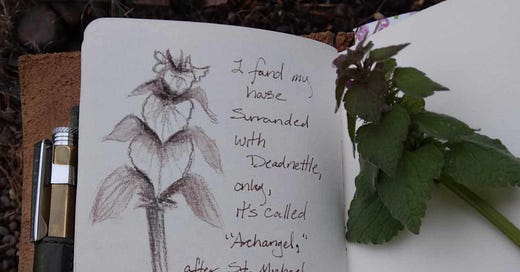 I fand my
house
Surranded
with
Deadnettle,
only,
it's called
"Archangel,"
after St. Michael